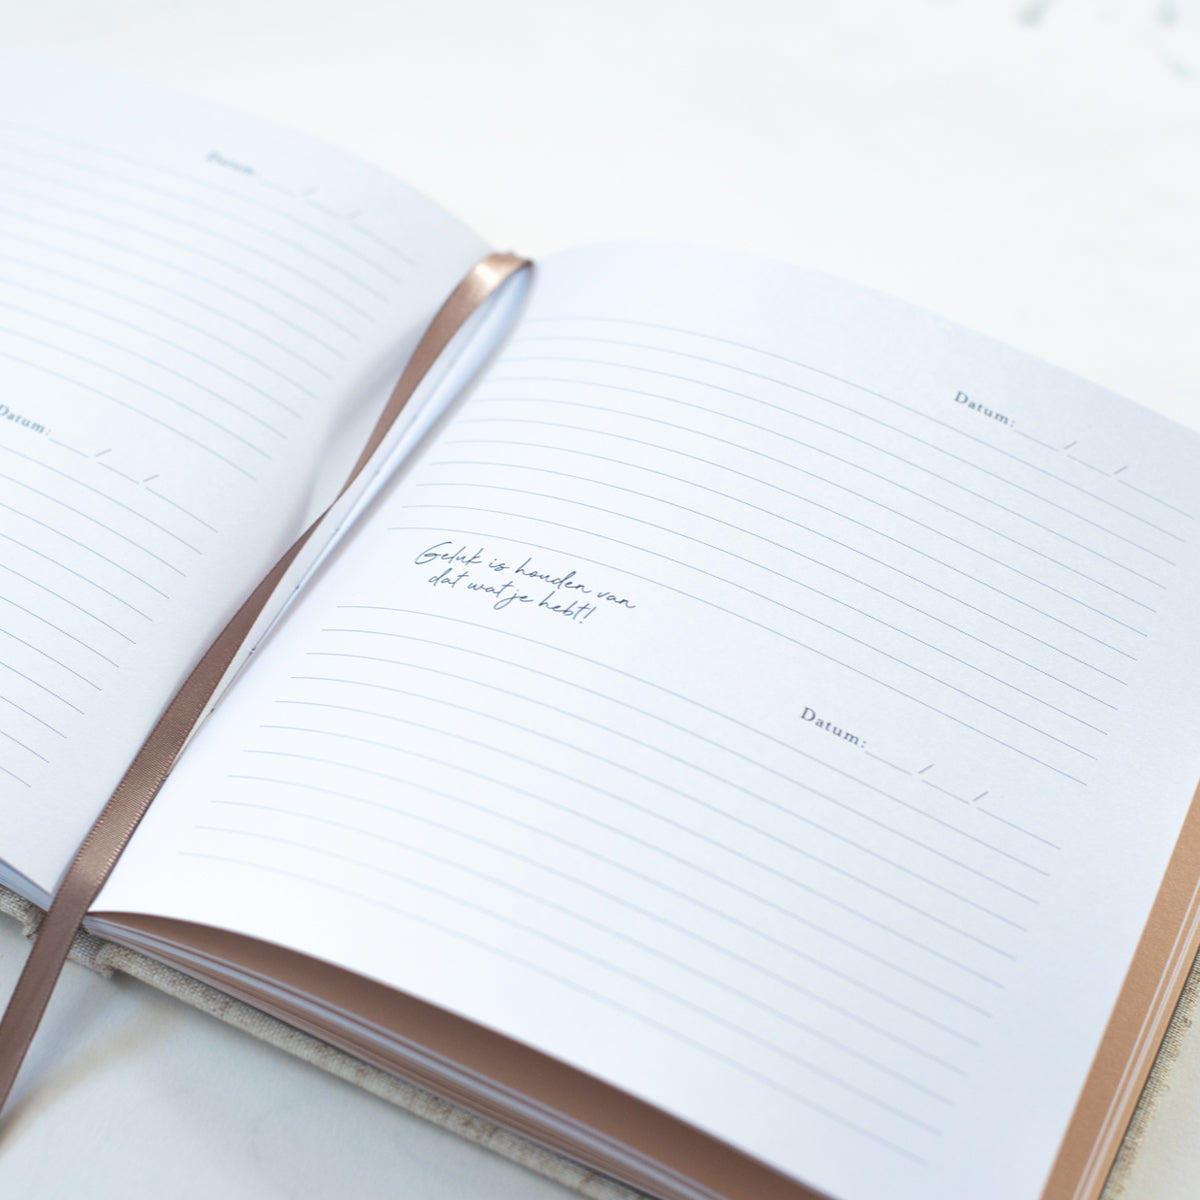 Datum: __/__/__
Datum: __/__/__
Datum: __/__/__
Geluk is houden van
dat wat je hebt!
Datum: __/__/__